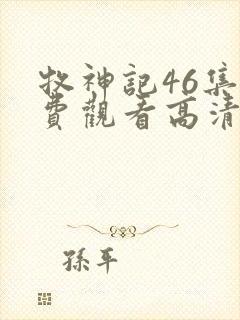 牧神記46集
費觀看高清
孫平